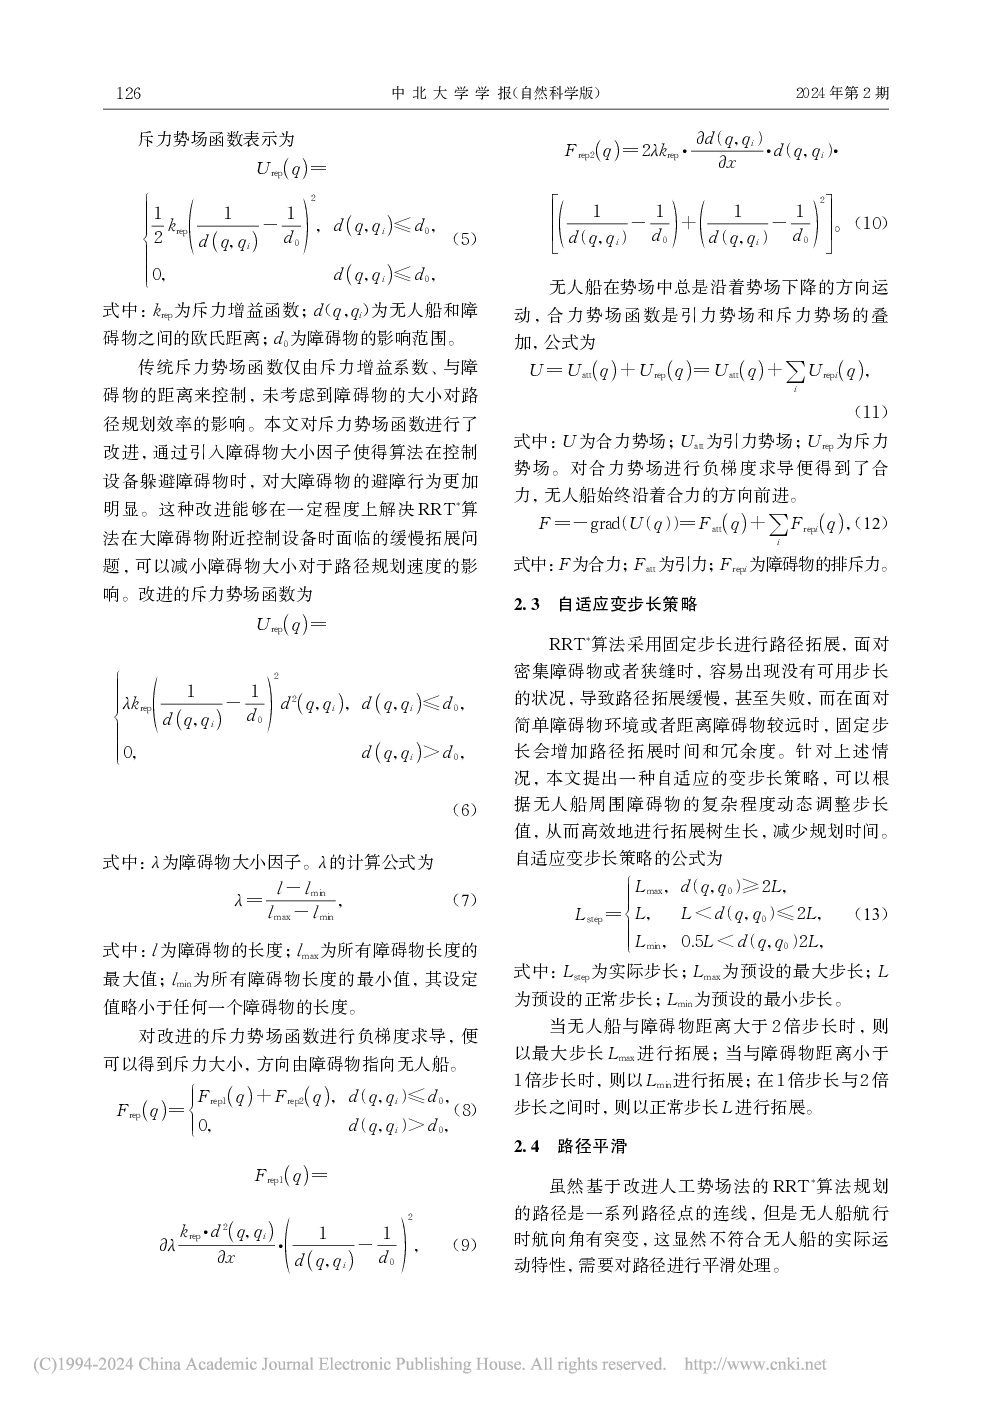 126
中 北 大 学 学 报(自然科学版)
2024 年第 2 期
斥力势场函数表示为
U_rep(q)=
{ 1/2 k_rep(1/d(q,q_i) − 1/d_0)^2, d(q,q_i)≤d_0,
0, d(q,q_i)≤d_0, (5)
式中: k_rep为斥力增益函数; d(q,q_i)为无人船和障
碍物之间的欧氏距离; d_0为障碍物的影响范围。
传统斥力势场函数仅由斥力增益系数、与障
碍物的距离来控制, 未考虑到障碍物的大小对路
径规划效率的影响。本文对斥力势场函数进行了
改进, 通过引入障碍物大小因子使得算法在控制
设备躲避障碍物时, 对大障碍物的避障行为更加
明显。这种改进能够在一定程度上解决 RRT*算
法在大障碍物附近控制设备时面临的缓慢拓展问
题, 可以减小障碍物大小对于路径规划速度的影
响。改进的斥力势场函数为
U_rep(q)=
{ λk_rep(1/d(q,q_i) − 1/d_0)^2 d^2(q,q_i), d(q,q_i)≤d_0,
0, d(q,q_i)>d_0,
(6)
式中: λ为障碍物大小因子。λ的计算公式为
λ=(l−l_min)/(l_max−l_min), (7)
式中: l为障碍物的长度; l_max为所有障碍物长度的
最大值; l_min为所有障碍物长度的最小值, 其设定
值略小于任何一个障碍物的长度。
对改进的斥力势场函数进行负梯度求导, 便
可以得到斥力大小, 方向由障碍物指向无人船。
F_rep(q)={ F_rep1(q)+F_rep2(q), d(q,q_i)≤d_0,
0, d(q,q_i)>d_0, (8)
F_rep1(q)=
∂λ (k_rep•d^2(q,q_i))/∂x •(1/d(q,q_i) − 1/d_0)^2, (9)
F_rep2(q)=2λk_rep•∂d(q,q_i)/∂x•d(q,q_i)•
[(1/d(q,q_i) − 1/d_0)+(1/d(q,q_i) − 1/d_0)^2]。(10)
无人船在势场中总是沿着势场下降的方向运
动, 合力势场函数是引力势场和斥力势场的叠
加, 公式为
U=U_att(q)+U_rep(q)=U_att(q)+∑_i U_repi(q),
(11)
式中: U为合力势场; U_att为引力势场; U_rep为斥力
势场。对合力势场进行负梯度求导便得到了合
力, 无人船始终沿着合力的方向前进。
F=−grad(U(q))=F_att(q)+∑_i F_repi(q), (12)
式中: F为合力; F_att为引力; F_repi为障碍物的排斥力。
2. 3 自适应变步长策略
RRT*算法采用固定步长进行路径拓展, 面对
密集障碍物或者狭缝时, 容易出现没有可用步长
的状况, 导致路径拓展缓慢, 甚至失败, 而在面对
简单障碍物环境或者距离障碍物较远时, 固定步
长会增加路径拓展时间和冗余度。针对上述情
况, 本文提出一种自适应的变步长策略, 可以根
据无人船周围障碍物的复杂程度动态调整步长
值, 从而高效地进行拓展树生长, 减少规划时间。
自适应变步长策略的公式为
L_step={ L_max, d(q,q_0)≥2L,
L, L<d(q,q_0)≤2L, (13)
L_min, 0.5L<d(q,q_0)2L,
式中: L_step为实际步长; L_max为预设的最大步长; L
为预设的正常步长; L_min为预设的最小步长。
当无人船与障碍物距离大于 2 倍步长时, 则
以最大步长 L_max进行拓展; 当与障碍物距离小于
1倍步长时, 则以 L_min进行拓展; 在 1 倍步长与 2 倍
步长之间时, 则以正常步长 L 进行拓展。
2. 4 路径平滑
虽然基于改进人工势场法的 RRT*算法规划
的路径是一系列路径点的连线, 但是无人船航行
时航向角有突变, 这显然不符合无人船的实际运
动特性, 需要对路径进行平滑处理。
(C)1994-2024 China Academic Journal Electronic Publishing House. All rights reserved. http://www.cnki.net